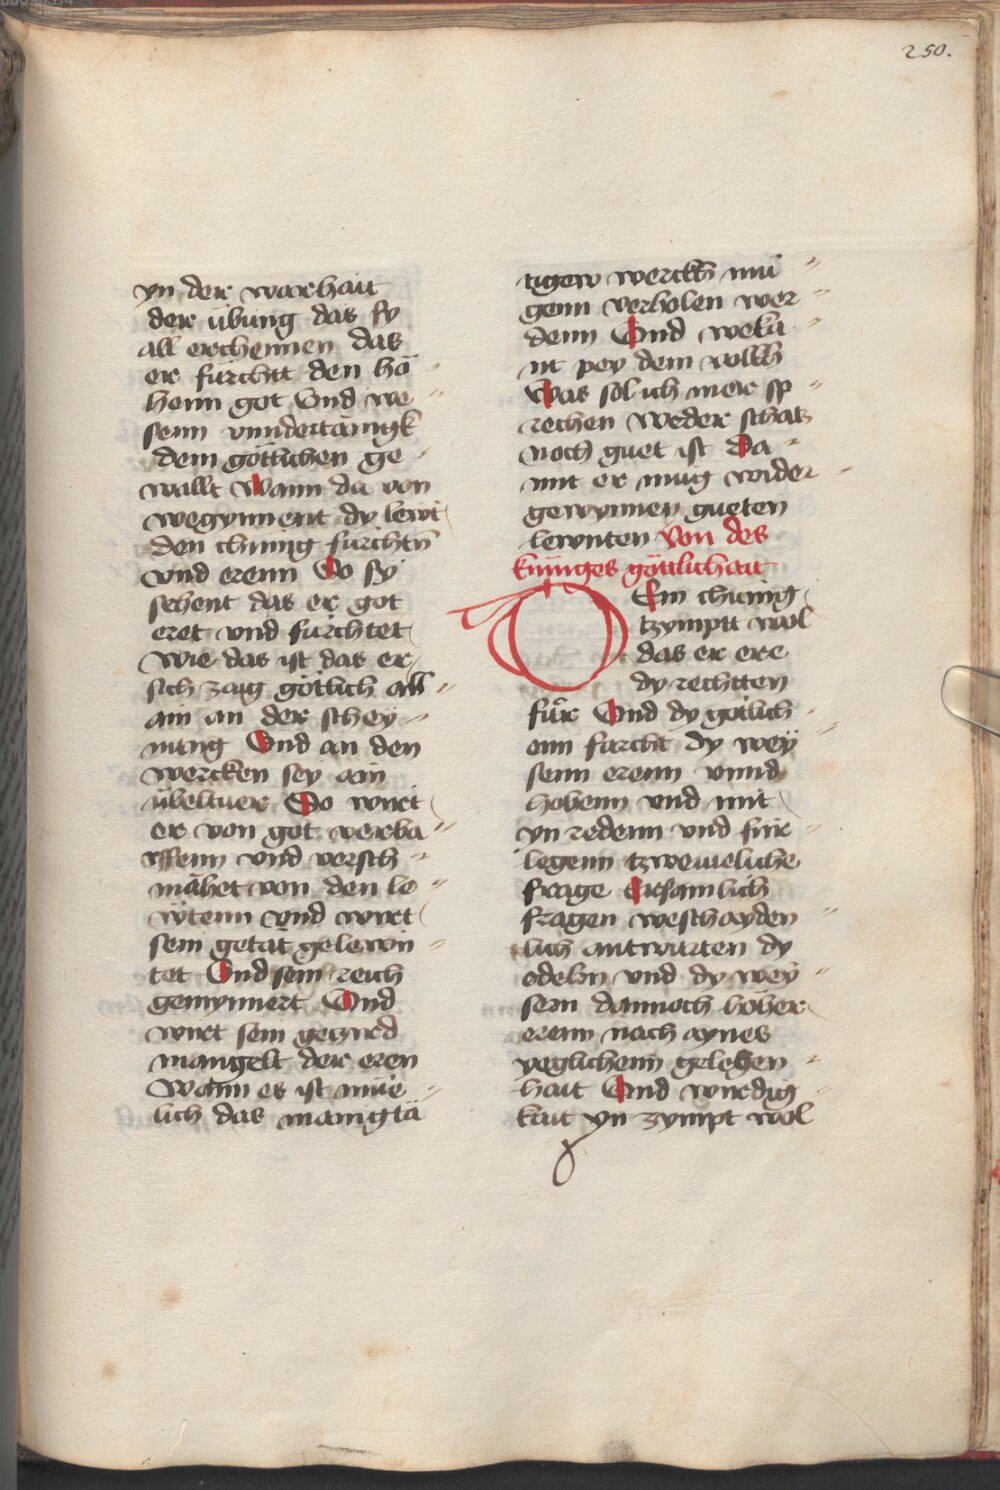 250.
yn der warhait
der übung das sy
all erchennen das
er fürchtt den hö
henn got Vnd we
senn vnndertänigk
dem göttlichen ge
wallt Wann da von
wegynnent dy lewt
den chunig fürchtñ
vnd erenn So sy
sehent das er got
eret vnd fürchtet
Wie das ist das er
sich zaig götlich all
ain an der schey
nung Vnd an den
wercken sey ain
übeltuer So wirt
er von got verba
rffenn vnd versch
mähet von den le
wtenn vnd wirt
sein getät gelewn
tet Vnd sein reich
gemynnert Vnd
wirt sein gezird
mangelt der eren
Wann es ist müe
lich das manigtä
tigew werckh mü
genn verholen wer
denn Vnd weka
nt pey dem vollkh
Was sol ich mer sp
rechen Weder schatz
noch guet ist Da
mit er mug wider
gewynnen gueten
lewnten Von des
küniges göttlichait
Eim chunig
tzymptt wol
das er ere
dy rechtten
für Vnd dy götlich
enn farcht dy wey
senn erenn vnnd
hobenn vnd mit
yn redenn vnd für
legenn tzweiueliche
frage Ersamlich
fragen weschayden
lich antwürten dy
edeln vnd dy wey
sern dannoch höher
erenn nach aynes
yeglichenn gelegen
hait Vnd wirdig
kait yn zympt wol